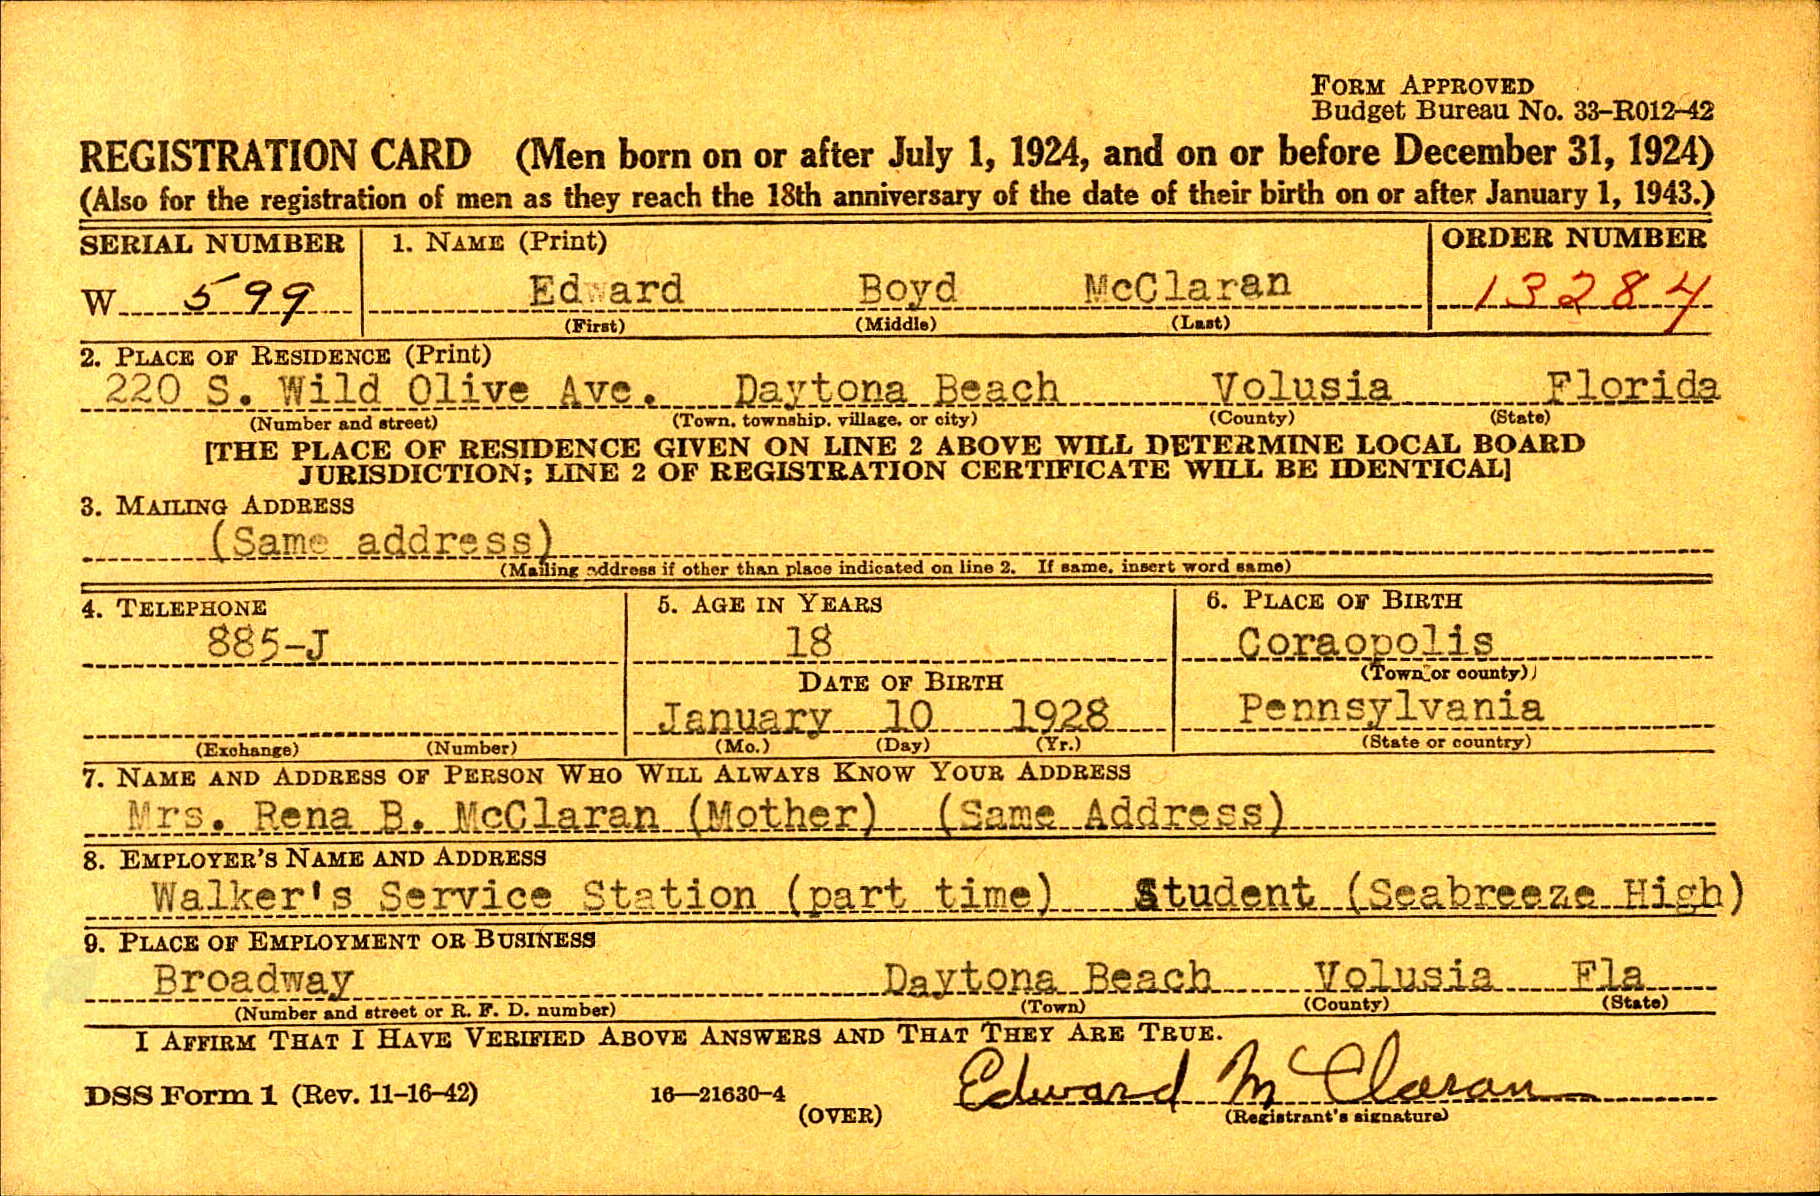 FORM APPROVED
Budget Bureau No. 33-R012-42
REGISTRATION CARD (Men born on or after July 1, 1924, and on or before December 31, 1924)
(Also for the registration of men as they reach the 18th anniversary of the date of their birth on or after January 1, 1943.)
SERIAL NUMBER 1. NAME (Print) ORDER NUMBER
W 599 Edward Boyd McClaran 13284
(First) (Middle) (Last)
2. PLACE OF RESIDENCE (Print)
220 S. Wild Olive Ave. Daytona Beach Volusia Florida
(Number and street) (Town, township, village, or city) (County) (State)
[THE PLACE OF RESIDENCE GIVEN ON LINE 2 ABOVE WILL DETERMINE LOCAL BOARD
JURISDICTION; LINE 2 OF REGISTRATION CERTIFICATE WILL BE IDENTICAL]
3. MAILING ADDRESS
(Same address)
(Mailing address if other than place indicated on line 2. If same, insert word same)
4. TELEPHONE 5. AGE IN YEARS 6. PLACE OF BIRTH
885-J 18 Coraopolis
(Town or county)
DATE OF BIRTH
January 10 1928 Pennsylvania
(Exchange) (Number) (Mo.) (Day) (Yr.) (State or country)
7. NAME AND ADDRESS OF PERSON WHO WILL ALWAYS KNOW YOUR ADDRESS
Mrs. Rena B. McClaran (Mother) (Same Address)
8. EMPLOYER'S NAME AND ADDRESS
Walker's Service Station (part time) Student (Seabreeze High)
9. PLACE OF EMPLOYMENT OR BUSINESS
Broadway Daytona Beach Volusia Fla
(Number and street or R. F. D. number) (Town) (County) (State)
I AFFIRM THAT I HAVE VERIFIED ABOVE ANSWERS AND THAT THEY ARE TRUE.
DSS Form 1 (Rev. 11-16-42) 16—21630-4 (OVER) Edward McClaran
(Registrant's signature)